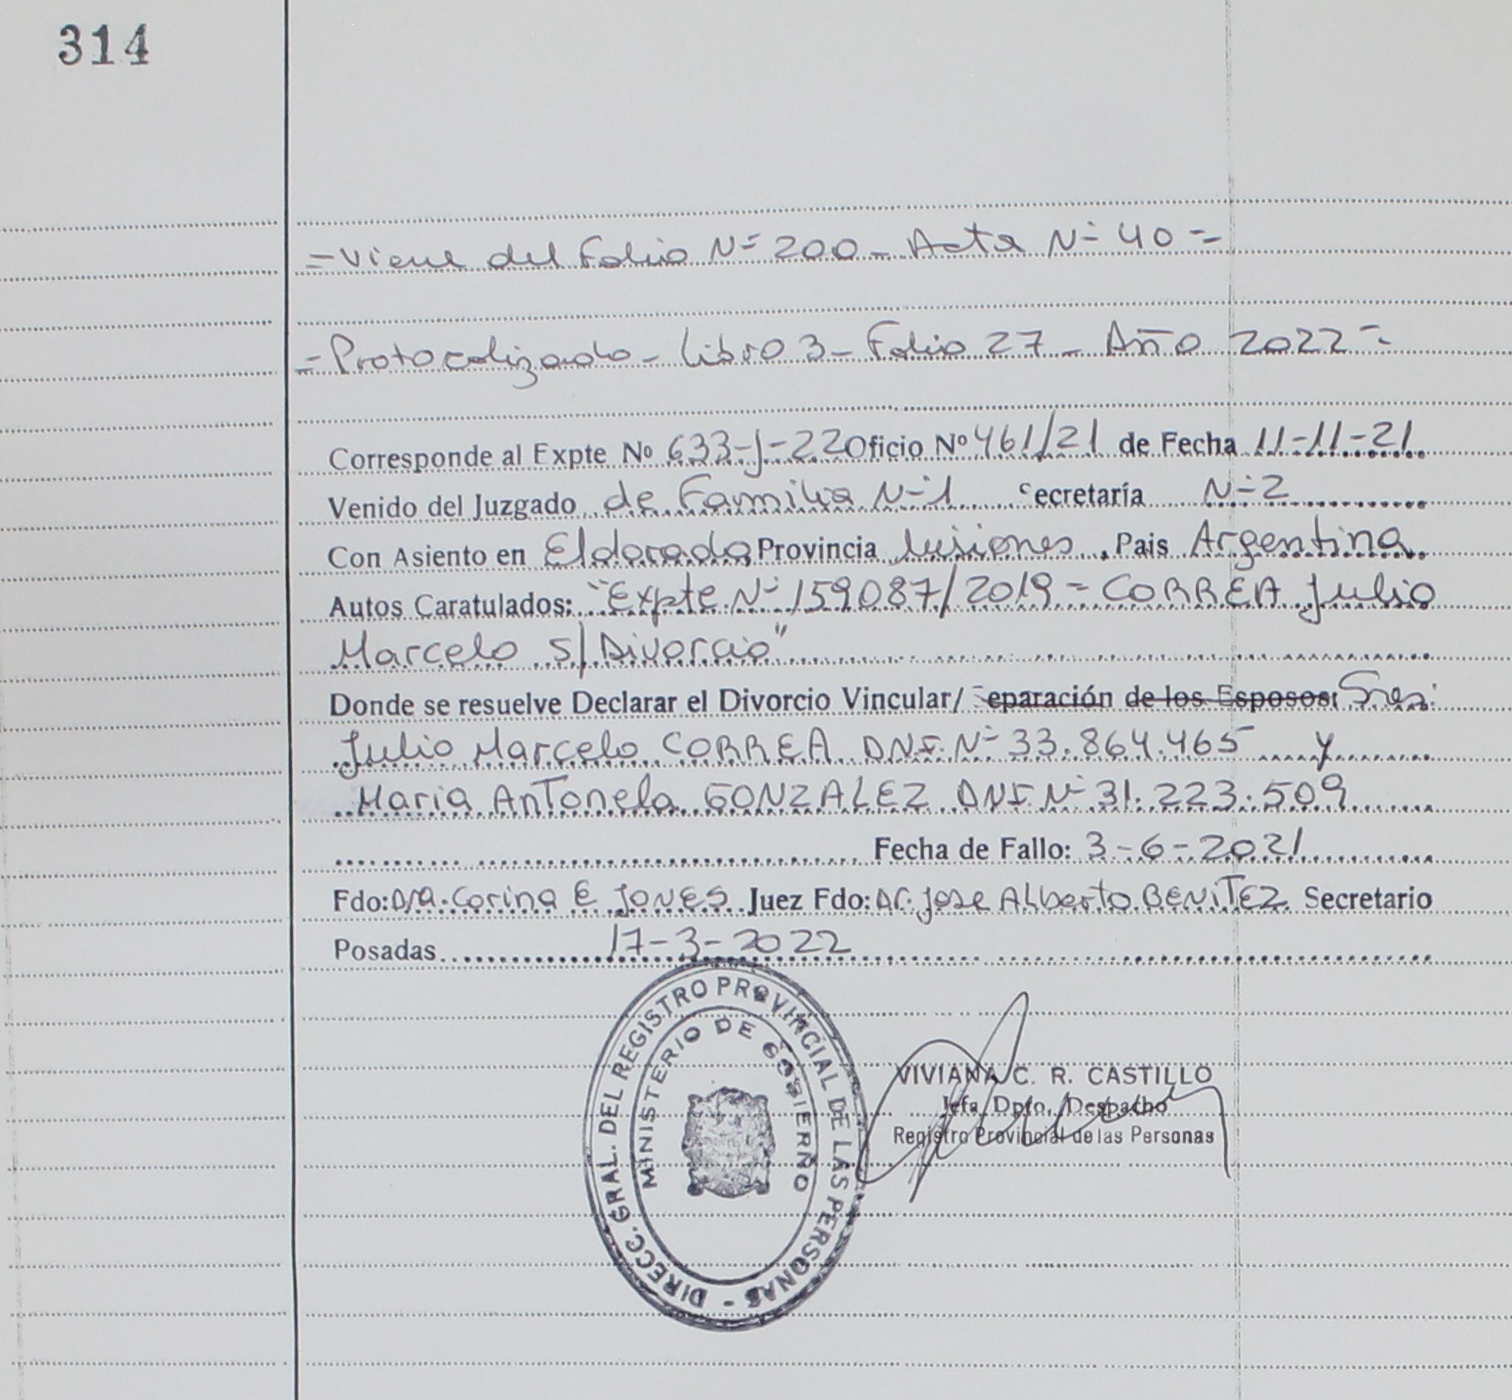 314
=Viene del Folio Nº 200 - Acta Nº 40 =
= Protocolizado - Libro 3 - Folio 27 - Año 2022 =
Corresponde al Expte Nº 633-J-22 Oficio Nº 461/21 de Fecha 11-11-21
Venido del Juzgado de Familia Nº 1 Secretaría Nº 2
Con Asiento en Eldorado Provincia Misiones, Pais Argentina
Autos Caratulados: "Expte Nº 159087/2019 - CORREA Julio
Marcelo S/ Divorcio"
Donde se resuelve Declarar el Divorcio Vincular/ Separación de los Esposos: Sres:
Julio Marcelo CORREA DNI. Nº 33.864.465 y
Maria Antonela GONZALEZ DNI Nº 31.223.509
Fecha de Fallo: 3-6-2021
Fdo: Dra. Corina E JONES Juez Fdo: Dr. Jose Alberto BENITEZ Secretario
Posadas 17-3-2022
DIRECC. GRAL. DEL REGISTRO PROVINCIAL DE LAS PERSONAS -
MINISTERIO DE GOBIERNO
VIVIANA C. R. CASTILLO
Jefa Dpto. Despacho
Registro Provincial de las Personas